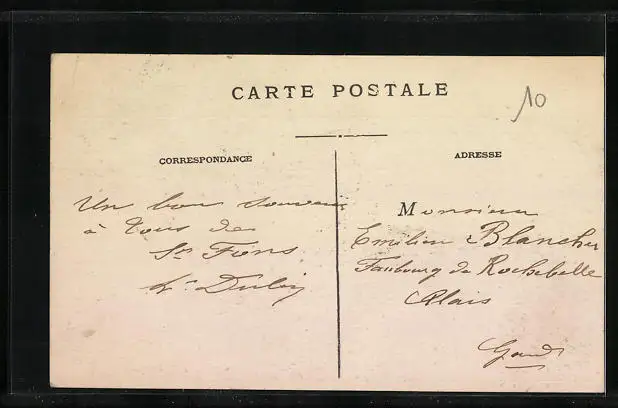 CARTE POSTALE
10
CORRESPONDANCE
Un bon souvenir
à tous de
St Fons
ADRESSE
Monsieur
Emilien Blancher
Faubourg de Rochebelle
Alais
Gard